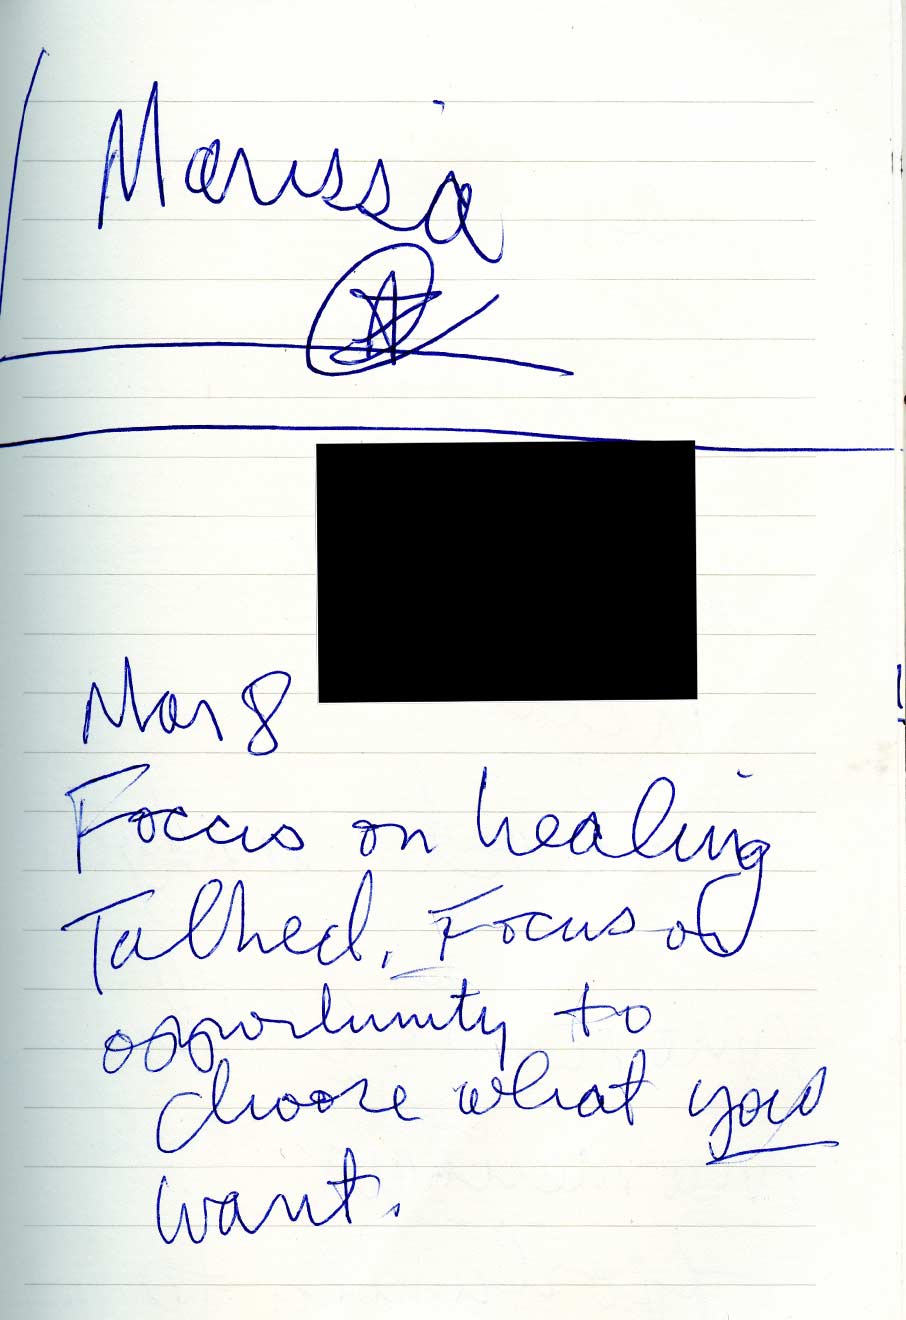 Marissa
Mar 8
Focus on healing
Talked. Focus on
opportunity to
choose what you
want.